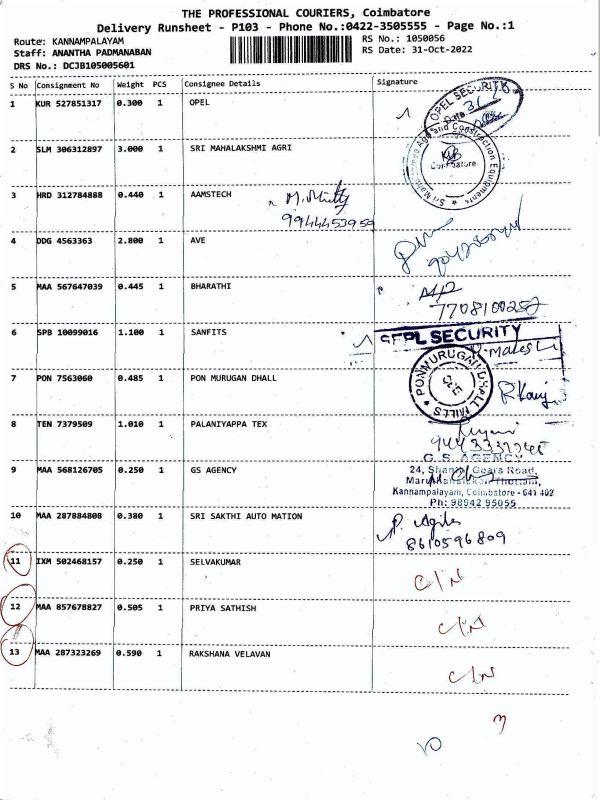 THE PROFESSIONAL COURIERS, Coimbatore
Delivery Runsheet - P103 - Phone No.:0422-3505555 - Page No.:1
Route: KANNAMPALAYAM RS No.: 1050056
Staff: ANANTHA PADMANABAN RS Date: 31-Oct-2022
DRS No.: DCJB105005601
S No Consignment No Weight PCS Consignee Details Signature
1 KUR 527851317 0.300 1 OPEL
OPEL SECURITY
Date
2 SLM 306312897 3.000 1 SRI MAHALAKSHMI AGRI
and Construction Equipments
Coimbatore
3 HRD 312784888 0.440 1 AAMSTECH
9944453959
4 DDG 4563363 2.800 1 AVE
5 MAA 567647039 0.445 1 BHARATHI
7708100252
6 SPB 10099016 1.100 1 SANFITS
SFPL SECURITY
7 PON 7563060 0.485 1 PON MURUGAN DHALL
PONMURUGAN DHALL MILLS
8 TEN 7379509 1.010 1 PALANIYAPPA TEX
9 MAA 568126705 0.250 1 GS AGENCY
G.S. AGENCY
24, Shanthi Gears Road,
Thottam,
Kannampalayam, Coimbatore - 641 402
Ph: 98942 95055
10 MAA 287884808 0.380 1 SRI SAKTHI AUTO MATION
8610596809
11 IXM 502468157 0.250 1 SELVAKUMAR
C/N
12 MAA 857678827 0.505 1 PRIYA SATHISH
C/N
13 MAA 287323269 0.590 1 RAKSHANA VELAVAN
C/N
3
10